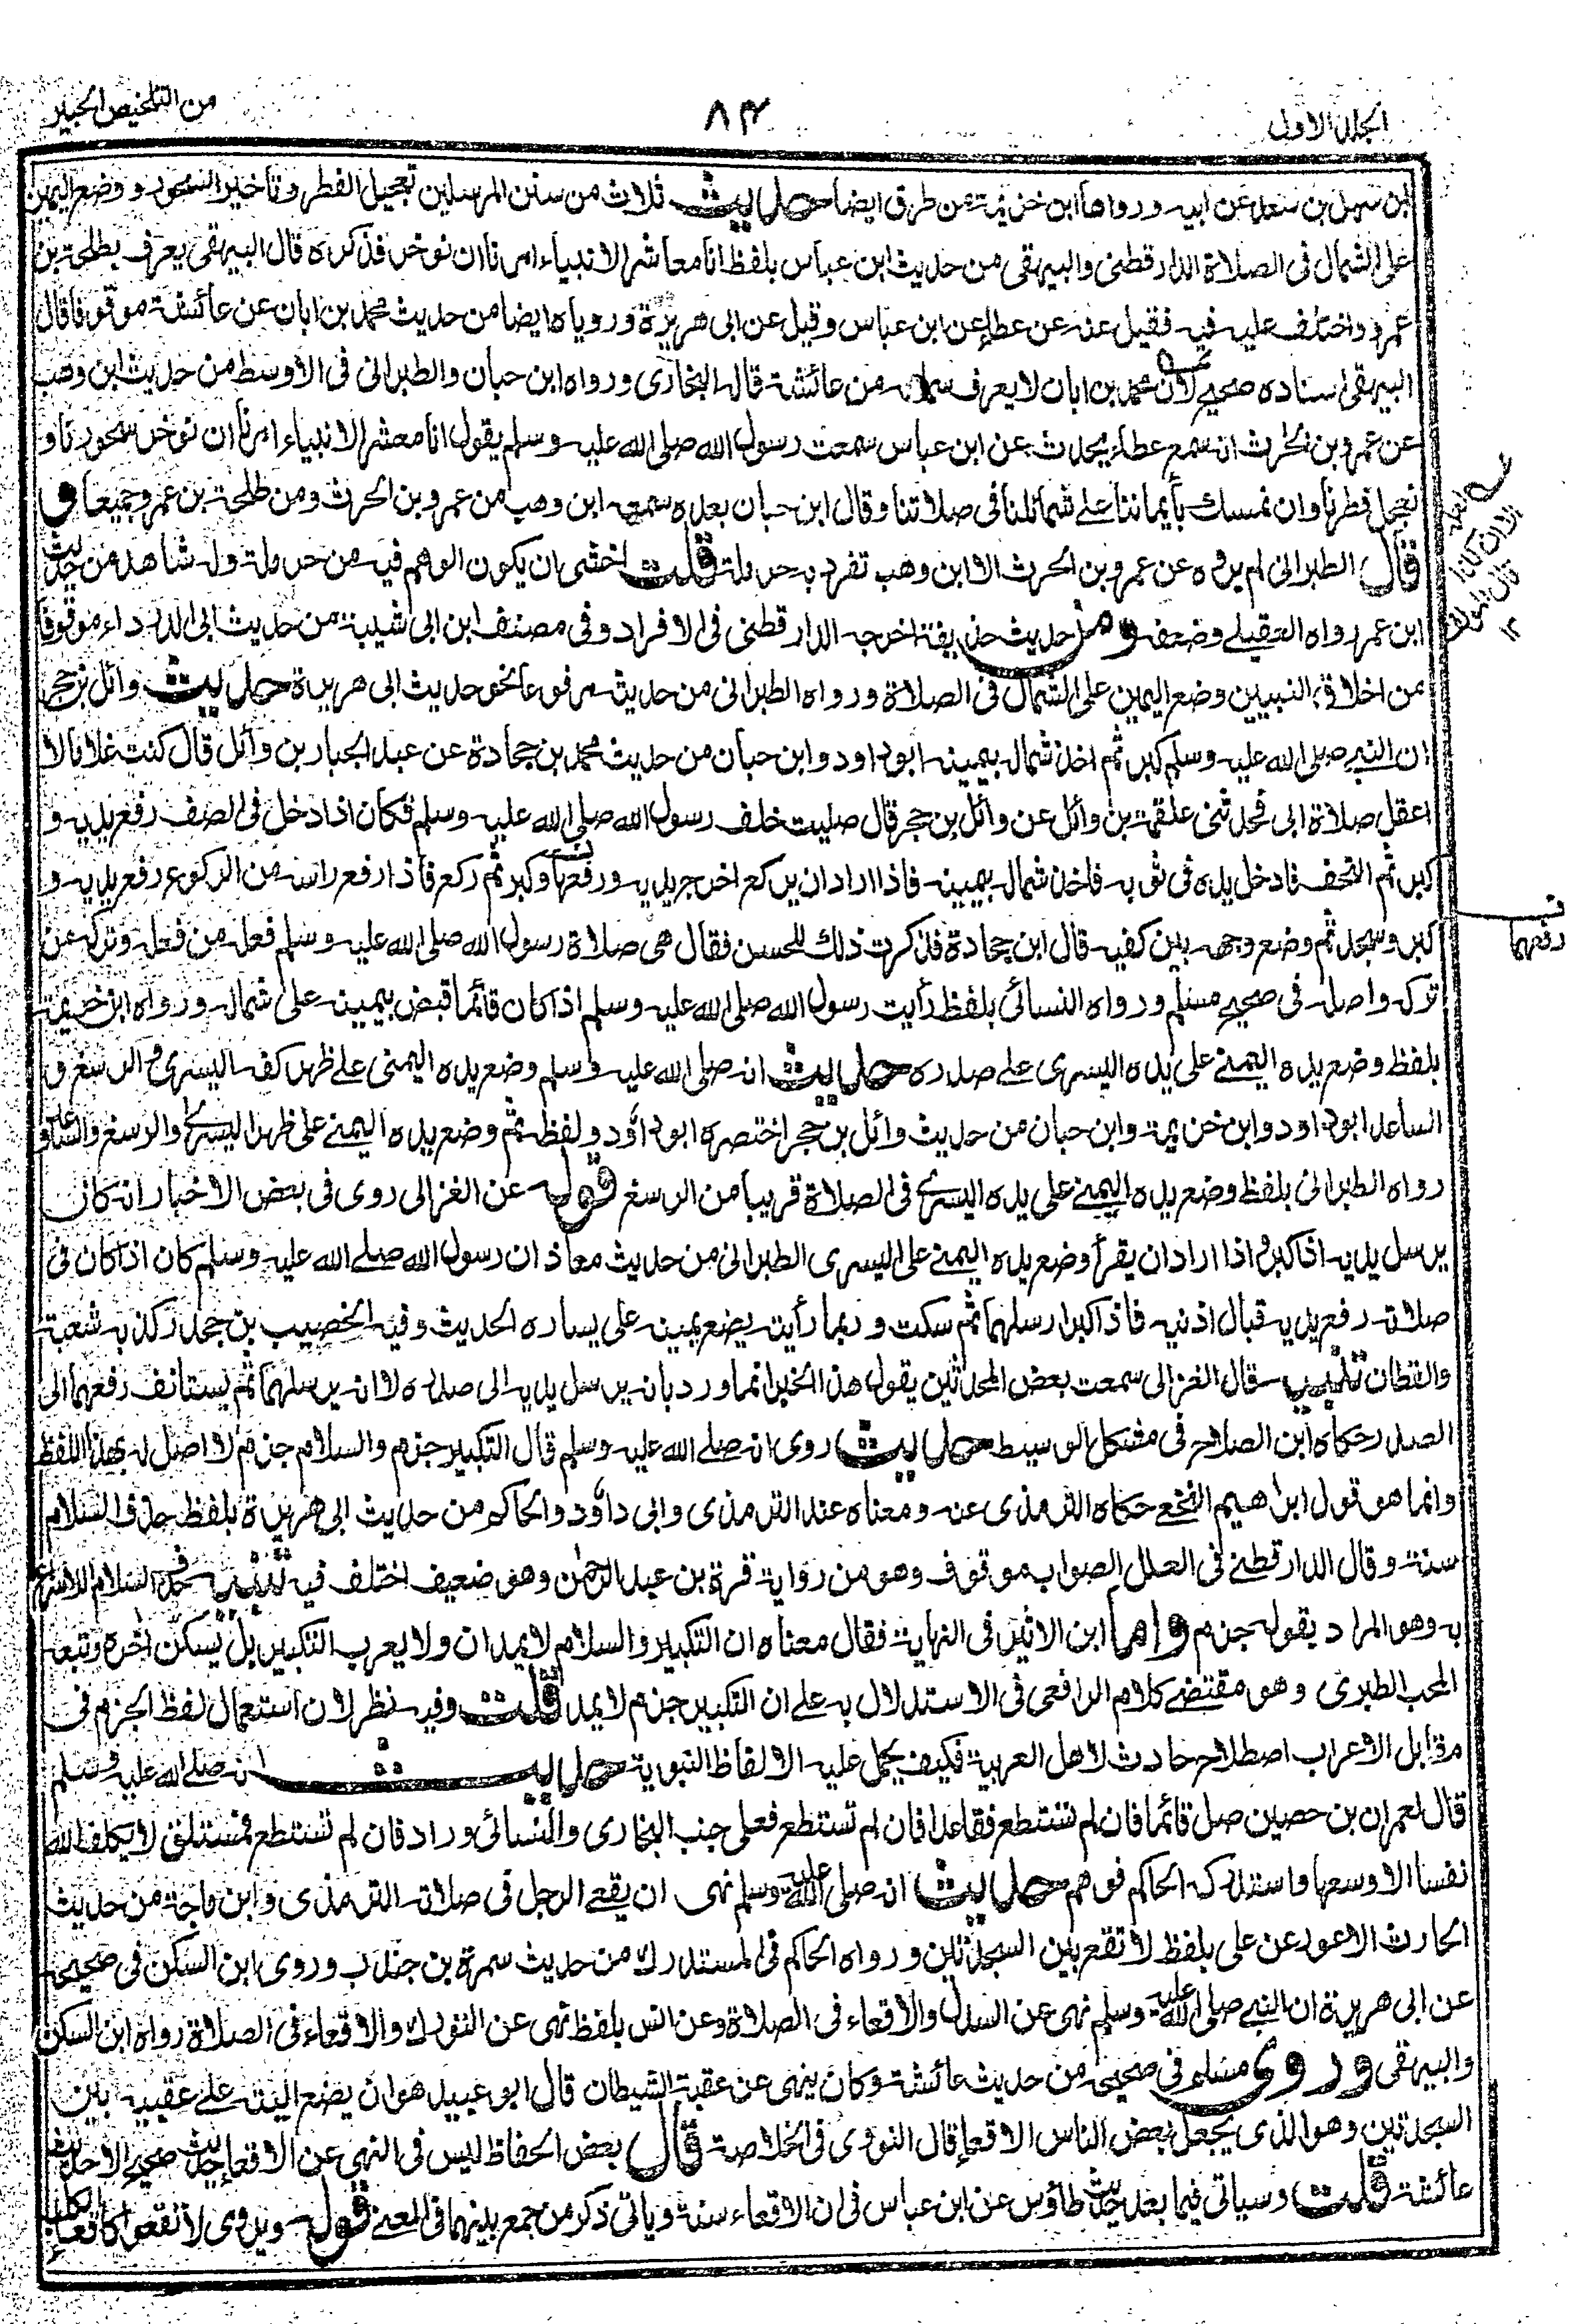 الجلد الاول
٨٤
من التلخيص الحبير
ابن سهل بن سعد عن ابيه ورواها ابن خزيمة من طرق ايضا حديث ثلاث من سنن المرسلين تعجيل الفطر وتأخير السحور ووضع اليمين
على الشمال فى الصلاة الدارقطنى والبيهقى من حديث ابن عباس بلفظ انا معاشر الانبياء امرنا ان نؤخر فذكره قال البيهقى يعرف بطلحة بن
عمرو واختلف عليه فيه فقيل عنه عن عطاء عن ابن عباس وقيل عن ابى هريرة وروياه ايضا من حديث محمد بن ابان عن عائشة موقوفا قال
البيهقى اسناده صحيح لان محمد بن ابان لا يعرف سماعه من عائشة قاله البخارى ورواه ابن حبان والطبرانى فى الاوسط من حديث ابن وهب
عن عمرو بن الحرث انه سمع عطاء يحدث عن ابن عباس سمعت رسول الله صلى الله عليه وسلم يقول انا معشر الانبياء امرنا ان نؤخر سحورنا و
نعجل فطرنا وان نمسك بأيماننا على شمائلنا فى صلاتنا وقال ابن حبان بعده سمعه ابن وهب من عمرو بن الحرث ومن طلحة بن عمرو جميعا و
قال الطبرانى لم يروه عن عمرو بن الحرث الا ابن وهب تفرد به حرملة قلت اخشى ان يكون الوهم فيه من حرملة وله شاهد من حديث
ابن عمر رواه العقيلى وضعفه ومن حديث حذيفة اخرجه الدارقطنى فى الافراد وفى مصنف ابن ابى شيبة من حديث ابى الدرداء موقوفا
من اخلاق النبيين وضع اليمين على الشمال فى الصلاة ورواه الطبرانى من حديثه مرفوعا نحو حديث ابى هريرة حديث وائل بن حجر
ان النبى صلى الله عليه وسلم كبر ثم اخذ شماله بيمينه ابوداود وابن حبان من حديث محمد بن جحادة عن عبد الجبار بن وائل قال كنت غلاما لا
اعقل صلاة ابى فحدثنى علقمة بن وائل عن وائل بن حجر قال صليت خلف رسول الله صلى الله عليه وسلم فكان اذا دخل فى الصف رفع يديه و
كبر ثم التحف فادخل يده فى ثوبه فاخذ شماله بيمينه فاذا اراد ان يركع اخرج يديه ورفعها وكبر ثم ركع فاذا رفع راسه من الركوع رفع يديه و
كبر وسجد ثم وضع وجهه بين كفيه قال ابن جحادة فذكرت ذلك للحسن فقال هى صلاة رسول الله صلى الله عليه وسلم فعله من فعله وتركه من
تركه واصله فى صحيح مسلم ورواه النسائى بلفظ رأيت رسول الله صلى الله عليه وسلم اذا كان قائما قبض بيمينه على شماله ورواه ابن خزيمة
بلفظ وضع يده اليمنى على يده اليسرى على صدره حديث انه صلى الله عليه وسلم وضع يده اليمنى على ظهر كفه اليسرى والرسغ و
الساعد ابوداود وابن خزيمة وابن حبان من حديث وائل بن حجر اختصره ابوداود ولفظه ثم وضع يده اليمنى على ظهر اليسرى والرسغ والساعد و
رواه الطبرانى بلفظ وضع يده اليمنى على يده اليسرى فى الصلاة قريبا من الرسغ قوله عن الغزالى روى فى بعض الاخبار انه كان
يرسل يديه اذا كبر واذا اراد ان يقرأ وضع يده اليمنى على اليسرى الطبرانى من حديث معاذ ان رسول الله صلى الله عليه وسلم كان اذا كان فى
صلاته رفع يديه قبال اذنيه فاذا كبر ارسلهما ثم سكت وربما رأيته يضع يمينه على يساره الحديث وفيه الخصيب بن جحدر كذبه شعبة
والقطان تنبيه قال الغزالى سمعت بعض المحدثين يقول هذا الخبر انما ورد بانه يرسل يديه الى صدره لا انه يرسلهما ثم يستانف رفعهما الى
الصدر حكاه ابن الصلاح فى مشكل الوسيط حديث روى انه صلى الله عليه وسلم قال التكبير جزم والسلام جزم لا اصل له بهذا اللفظ
وانما هو قول ابراهيم النخعى حكاه الترمذى عنه ومعناه عند الترمذى وابى داود والحاكم من حديث ابى هريرة بلفظ حذف السلام
سنة وقال الدارقطنى فى العلل الصواب موقوف وهو من رواية قرة بن عبد الرحمن وهو ضعيف اختلف فيه تنبيه حذف السلام الاسراع
به وهو المراد بقوله جزم واما ابن الاثير فى النهاية فقال معناه ان التكبير والسلام لا يمدان ولا يعرب التكبير بل يسكن اخره وتبعه
المحب الطبرى وهو مقتضى كلام الرافعى فى الاستدلال به على ان التكبير جزم لا يمد قلت وفيه نظر لان استعمال لفظ الجزم فى
مقابل الاعراب اصطلاح حادث لاهل العربية فكيف يحمل عليه الالفاظ النبوية حديث انه صلى الله عليه وسلم
قال لعمران بن حصين صل قائما فان لم تستطع فقاعدا فان لم تستطع فعلى جنب البخارى والنسائى وزاد فان لم تستطع فمستلق لا يكلف الله
نفسا الا وسعها واستدركه الحاكم فوهم حديث انه صلى الله عليه وسلم نهى ان يقعى الرجل فى صلاته الترمذى وابن ماجة من حديث
الحارث الاعور عن على بلفظ لا تقع بين السجدتين ورواه الحاكم فى المستدرك من حديث سمرة بن جندب وروى ابن السكن فى صحيحه
عن ابى هريرة ان النبى صلى الله عليه وسلم نهى عن السدل والاقعاء فى الصلاة وعن انس بلفظ نهى عن التورك والاقعاء فى الصلاة رواه ابن السكن
والبيهقى وروى مسلم فى صحيحه من حديث عائشة وكان ينهى عن عقبة الشيطان قال ابو عبيد هو ان يضع اليته على عقبيه بين
السجدتين وهو الذى يجعله بعض الناس الاقعاء قال النووى فى الخلاصة قال بعض الحفاظ ليس فى النهى عن الاقعاء حديث صحيح الا حديث
عائشة قلت وسياتى فيما بعد حديث طاؤس عن ابن عباس فى ان الاقعاء سنة وياتى ذكر من جمع بينهما فى المعنى قوله ويروى لا تقعوا اقعاء الكلب
رفعهما